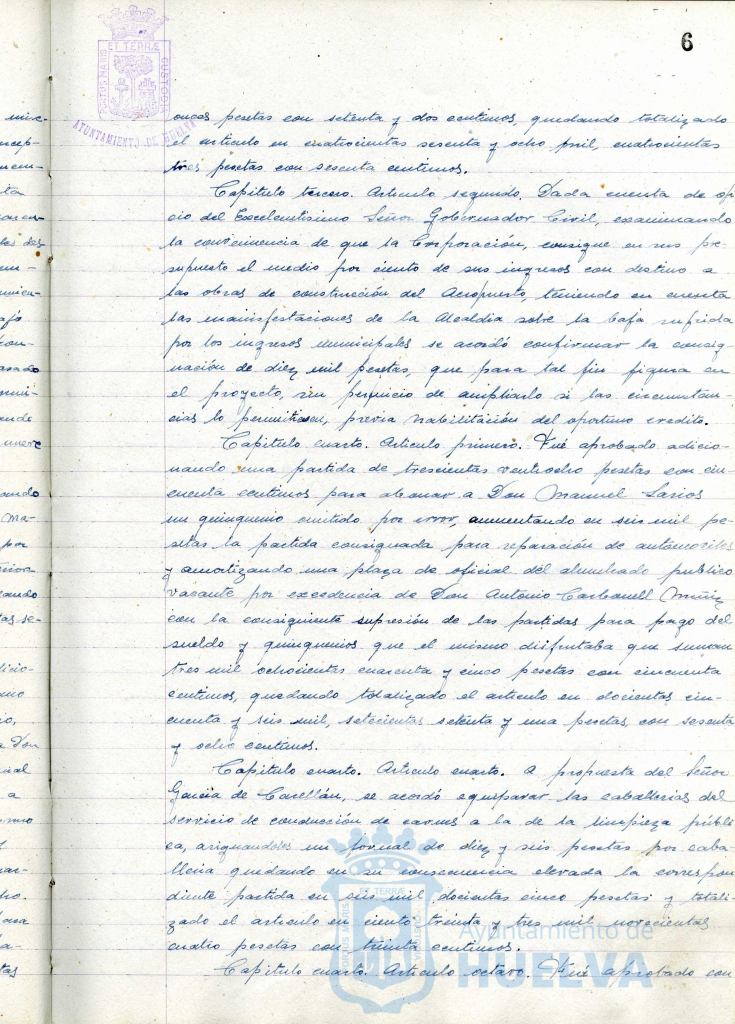 6
PORTUS MARIS ET TERRÆ CUSTODIA
AYUNTAMIENTO DE HUELVA
onces pesetas con setenta y dos centimos, quedando totalizado
el articulo en cuatrocientas sesenta y ocho mil, cuatrocientas
tres pesetas con sesenta centimos.
Capitulo tercero. Articulo segundo. Dada cuenta de ofi
cio del Excelentisimo Señor Gobernador Civil, examinando
la conveniencia de que la Corporación, consigne en sus pre-
supuesto el medio por ciento de sus ingresos con destino a
las obras de construcción del Aeropuerto, teniendo en cuenta
las manifestaciones de la Alcaldia sobre la baja sufrida
por los ingresos municipales se acordó confirmar la consig-
nación de diez mil pesetas, que para tal fin figura en
el proyecto, sin perjuicio de ampliarlo si las circunstan-
cias lo permitiesen, previa habilitación del oportuno credito.
Capitulo cuarto. Articulo primero. Fué aprobado adicio-
nando una partida de trescientas ventiocho pesetas con cin-
cuenta centimos para abonar a Don Manuel Larios
un quinquenio omitido por error, aumentando en seis mil pe-
setas la partida consignada para reparación de automoviles
y amortizando una plaza de oficial del alumbrado publico
vacante por excedencia de Don Antonio Carbonell Muñiz
con la consiguiente supresión de las partidas para pago del
sueldo y quinquenios que el mismo disfrutaba que suman
tres mil ochocientas cuarenta y cinco pesetas con cincuenta
centimos, quedando totalizado el articulo en docientas cin-
cuenta y seis mil, setecientas setenta y una pesetas, con sesenta
y ocho centimos.
Capitulo cuarto. Articulo cuarto. A propuesta del Señor
Garcia de Carellán, se acordó equiparar las caballerias del
servicio de conducción de carnes a la de la limpieza públi-
ca, asignandoles un jornal de diez y seis pesetas por caba-
lleria quedando en su consecuencia elevada la correspon
diente partida en seis mil, docientas cinco pesetas y totali-
zado el articulo en ciento treinta y tres mil novecientas
cuatro pesetas con treinta centimos.
Capitulo cuarto. Articulo octavo. Fué aprobado con
Ayuntamiento de
HUELVA